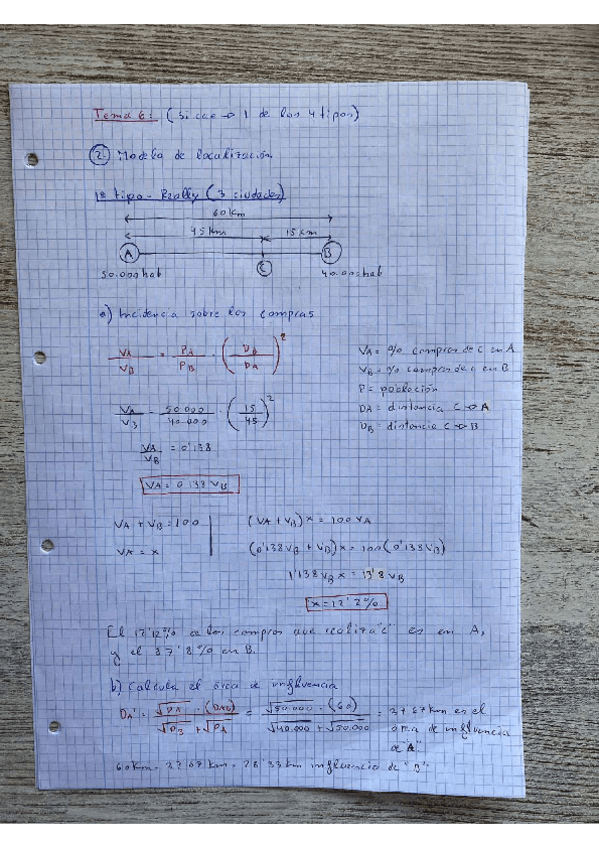 Tema 6: (Si cae → 1 de los 4 tipos)
2. Modelo de localización
1º tipo - Really (3 ciudades)
60 km
45 km 15 km
A C B
50.000 hab 40.000 hab
a) Incidencia sobre las compras
VA/VB = PA/PB · (DB/DA)²
VA = % compras de C en A
VB = % compras de C en B
P = población
DA = distancia C → A
DB = distancia C → B
VA/VB = 50.000/40.000 · (15/45)²
VA/VB = 0'138
VA = 0'138 VB
VA + VB = 100 (VA + VB) x = 100 VA
VA = x (0'138 VB + VB) x = 100 (0'138 VB)
1'138 VB x = 13'8 VB
x = 12'2%
El 12'12% de las compras que realiza "C" es en A,
y el 87'8% en B.
b) Calcula el área de influencia
DA' = √PA · (DAB) / √PB + √PA = √50.000 · (60) / √40.000 + √50.000 = km es el
área de influencia
de "A"
60 km - km = km influencia de "B"